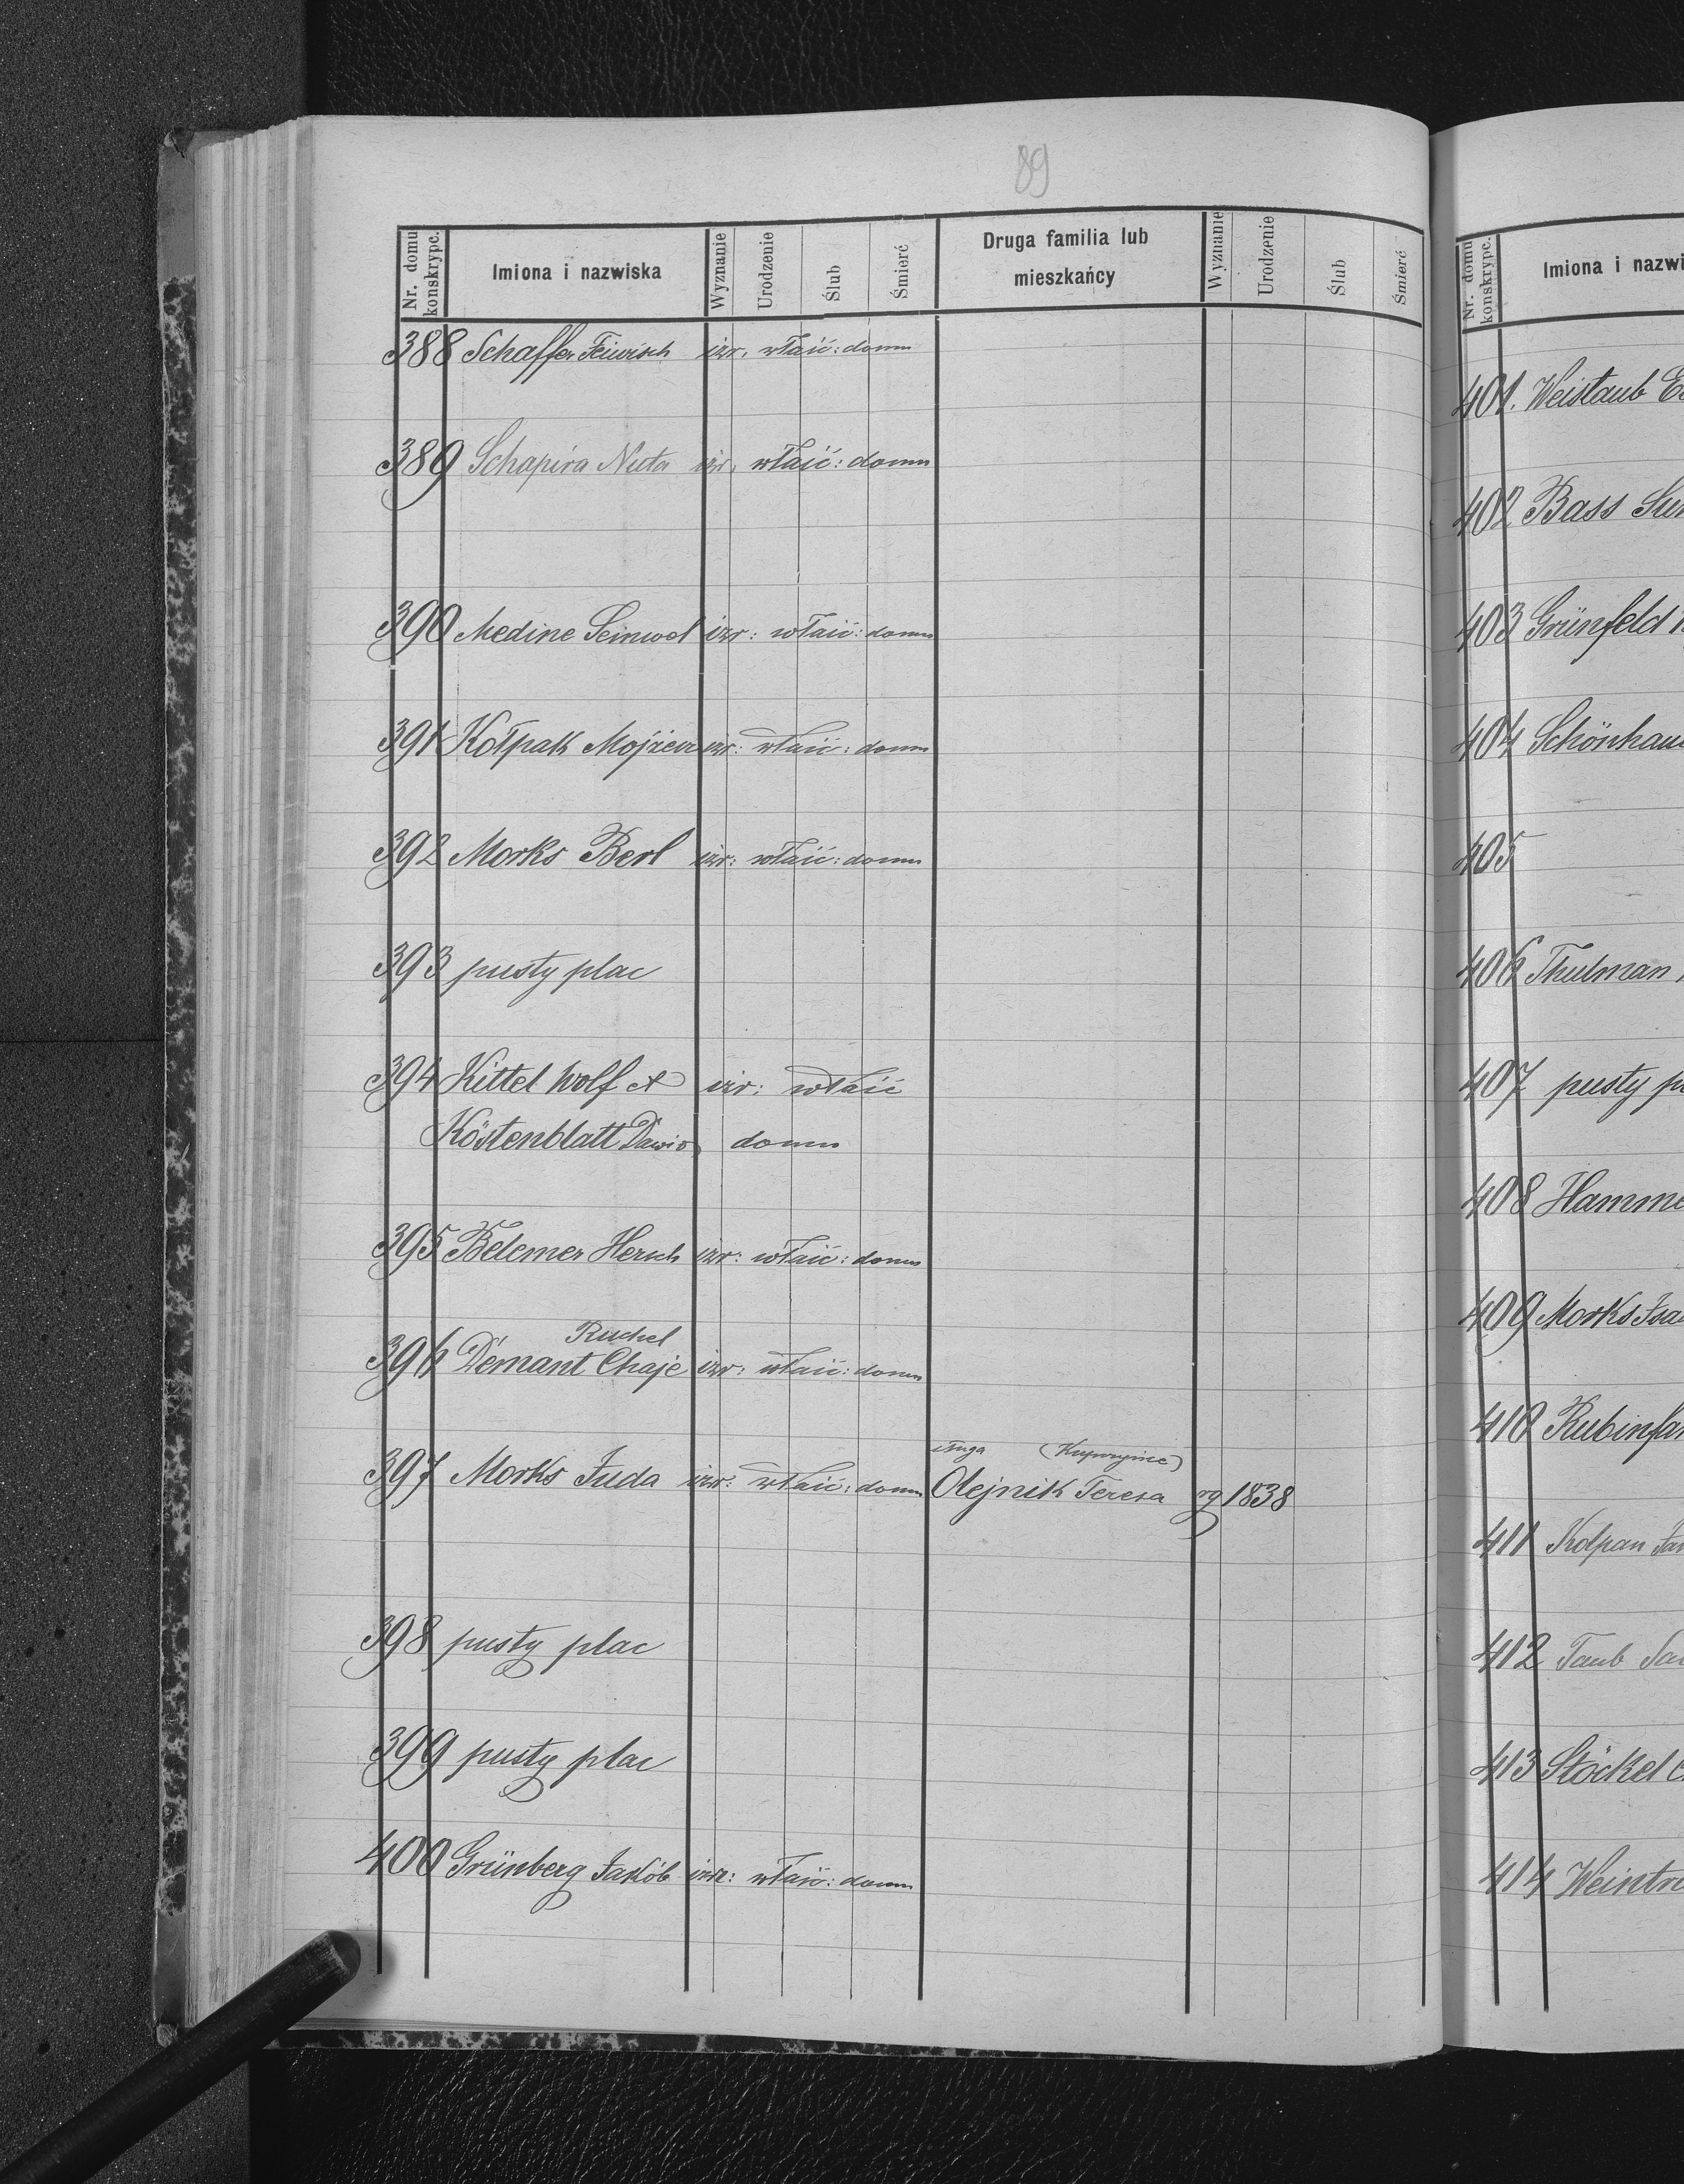 89
Nr. domu konskrypc. Imiona i nazwiska Wyznanie Urodzenie Ślub Śmierć Druga familia lub mieszkańcy Wyznanie Urodzenie Ślub Śmierć
388 Schaffer Feiwisch izr. właść: domu
389 Schapira Nuta izr. właść: domu
390 Medine Seinwel izr: właść: domu
391 Kołpak Mojżesz izr: właść: domu
392 Morks Berl izr: właść: domu
393 pusty plac
394 Kittel Wolf et izr: właść
Köstenblatt Dawid domu
395 Belemer Hersch izr: właść: domu
Ruchel
396 Demant Chaje izr: właść: domu
sługa
397 Morks Juda izr: właść: domu Olejnik Teresa rg 1838
398 pusty plac
399 pusty plac
400 Grünberg Jakób izr: właść: domu
Nr. domu konskrypc. Imiona i nazwi
401. Weistaub
402 Bass
403 Grünfeld
404 Schönhau
405
406 Thulman
407 pusty
408 Hamme
409 Morks Isa
410 Rubinfa
411 Kolpan
412 Taub
413 Stöckel
414 Weintr